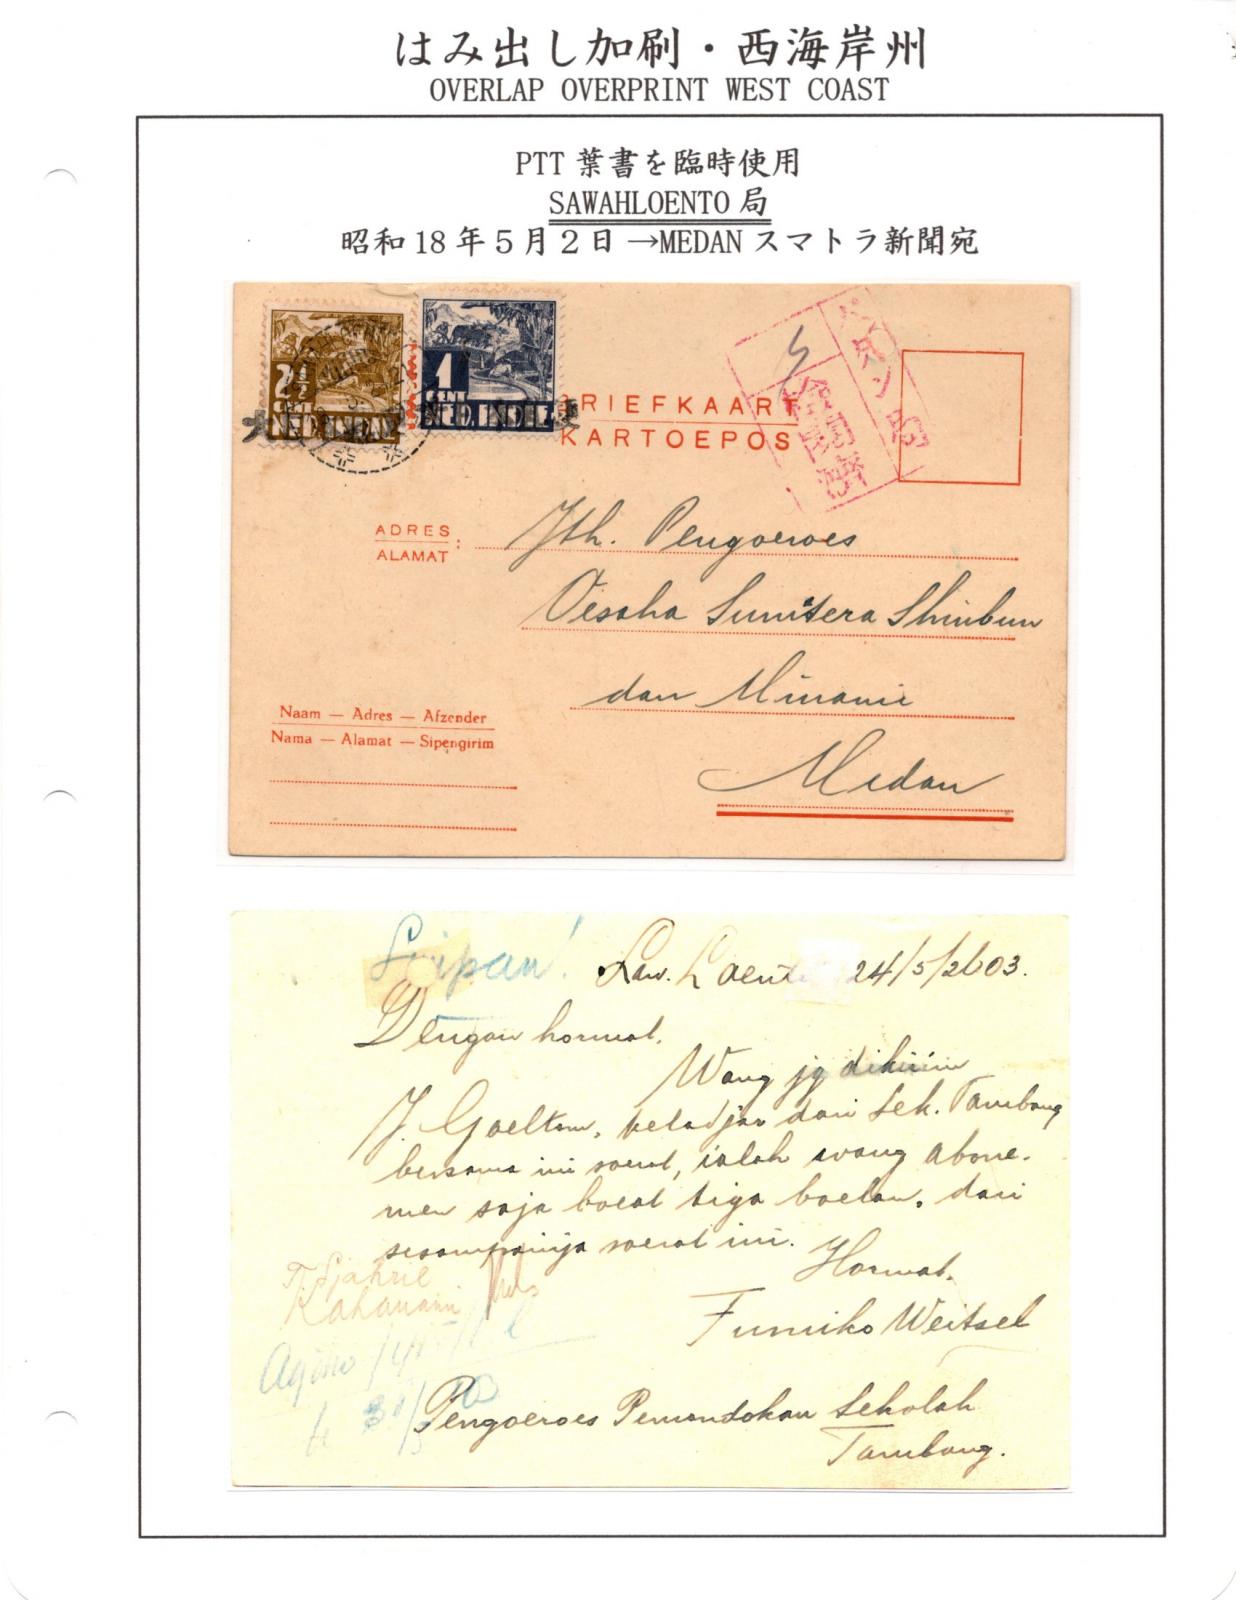 はみ出し加刷・西海岸州
OVERLAP OVERPRINT WEST COAST
PTT 葉書を臨時使用
SAWAHLOENTO 局
昭和 18 年 5 月 2 日 →MEDAN スマトラ新聞宛
2½
CENT
NED. INDIE
1
CENT
NED. INDIE
BRIEFKAART
KARTOEPOS
メダン局
検閲済
ADRES
ALAMAT :
Jth. Pengoeroes
Oesaha Sumatera Shinbun
dan Minami
Medan
Naam — Adres — Afzender
Nama — Alamat — Sipengirim
Simpan!
Saw. Loento 24/5/2603.
Dengan hormat.
Wang jg dikirim
J. Goeltom, peladjar dari Sek. Tambang
bersama ini soerat, ialah wang abone-
men saja boeat tiga boelan, dari
sesampainja soerat ini.
Hormat,
Fumiko Weitsel
Pengoeroes Pemondokan Sekolah
Tambang.